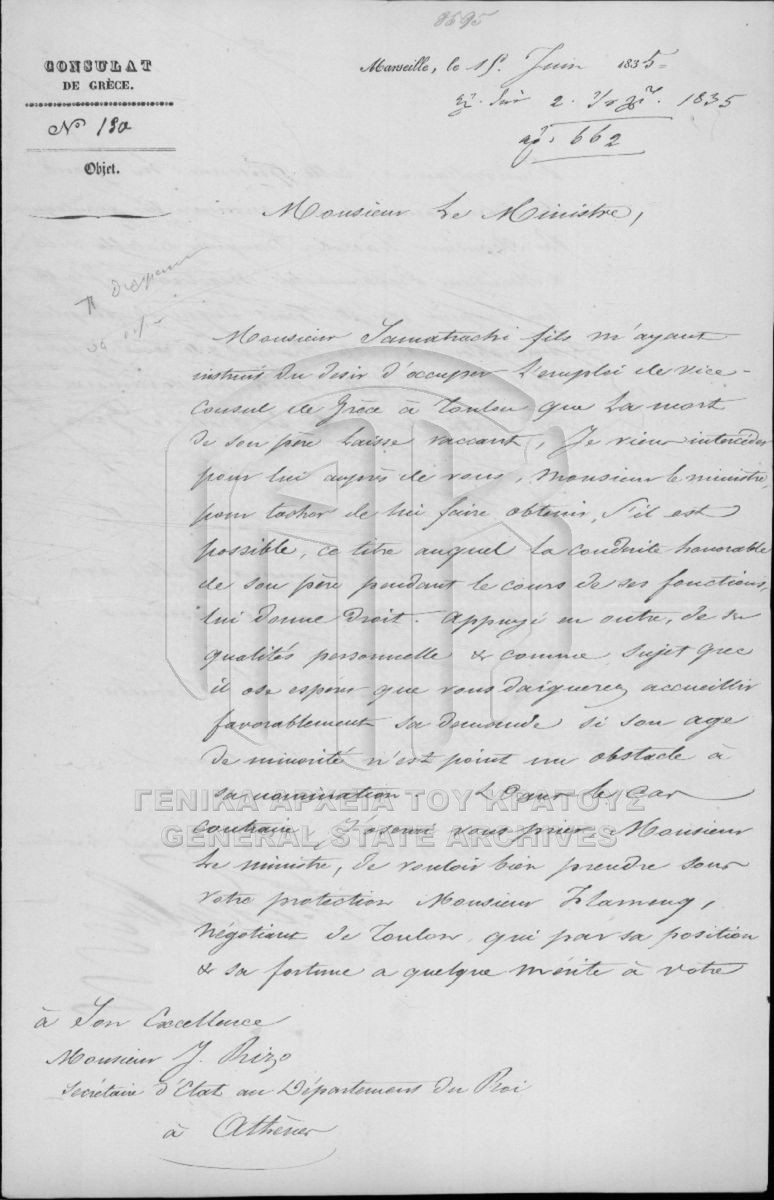 8595
CONSULAT
DE GRÈCE.
Nº 130
Objet.
Marseille, le 15. Juin 1835
2. 1835
662
Monsieur Le Ministre,
Monsieur Samatrachi fils m'ayant
instruit du desir d'occuper L'emploi de vice-
Consul de Grèce à Toulon que La mort
de son père Laisse vaccant, Je viens intercéder
pour lui auprès de vous, Monsieur le ministre,
pour tacher de lui faire obtenir, s'il est
possible, ce titre auquel La conduite honorable
de son père pendant le cours de ses fonctions,
lui donne droit. Appuyé en outre, de ses
qualités personnelle & comme sujet grec
il ose espérer que vous daignerez accueillir
favorablement sa demande si son age
de minorité n'est point un obstacle à
sa nomination Dans le cas
contraire, J'oserai vous prier Monsieur
Le ministre, de vouloir bien prendre sous
votre protection Monsieur Flameng,
Négotiant de Toulon, qui par sa position
& sa fortune a quelque mérite à votre
à Son Excellence
Monsieur J. Rizo
Secrétaire d'Etat au Département du Roi
à Athènes
ΓΕΝΙΚΑ ΑΡΧΕΙΑ ΤΟΥ ΚΡΑΤΟΥΣ
GENERAL STATE ARCHIVES